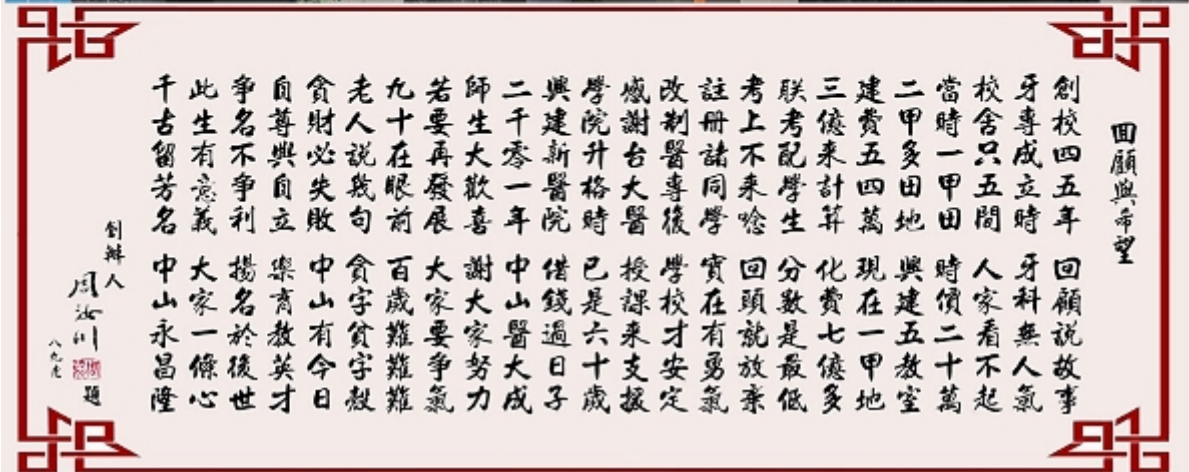 回顧與希望
創校四五年 回顧說故事
牙專成立時 牙科無人氣
校舍只五間 人家看不起
當時一甲田 時價二十萬
二甲多田地 興建五教室
建費五四萬 現在一甲地
三億來計算 化費七億多
联考配學生 分數是最低
考上不來唸 回頭就放棄
註冊諸同學 實在有勇氣
改制醫專後 學校才安定
感謝台大醫 授課來支援
學院升格時 已是六十歲
興建新醫院 借錢過日子
二千零一年 中山醫大成
師生大歡喜 謝大家努力
若要再發展 大家要爭氣
九十在眼前 百歲難難難
老人說幾句 貪字貧字殼
貪財必失敗 中山有今日
自尊與自立 樂育教英才
爭名不爭利 揚名於後世
此生有意義 大家一條心
千古留芳名 中山永昌隆
創辦人
周汝川 題
八九